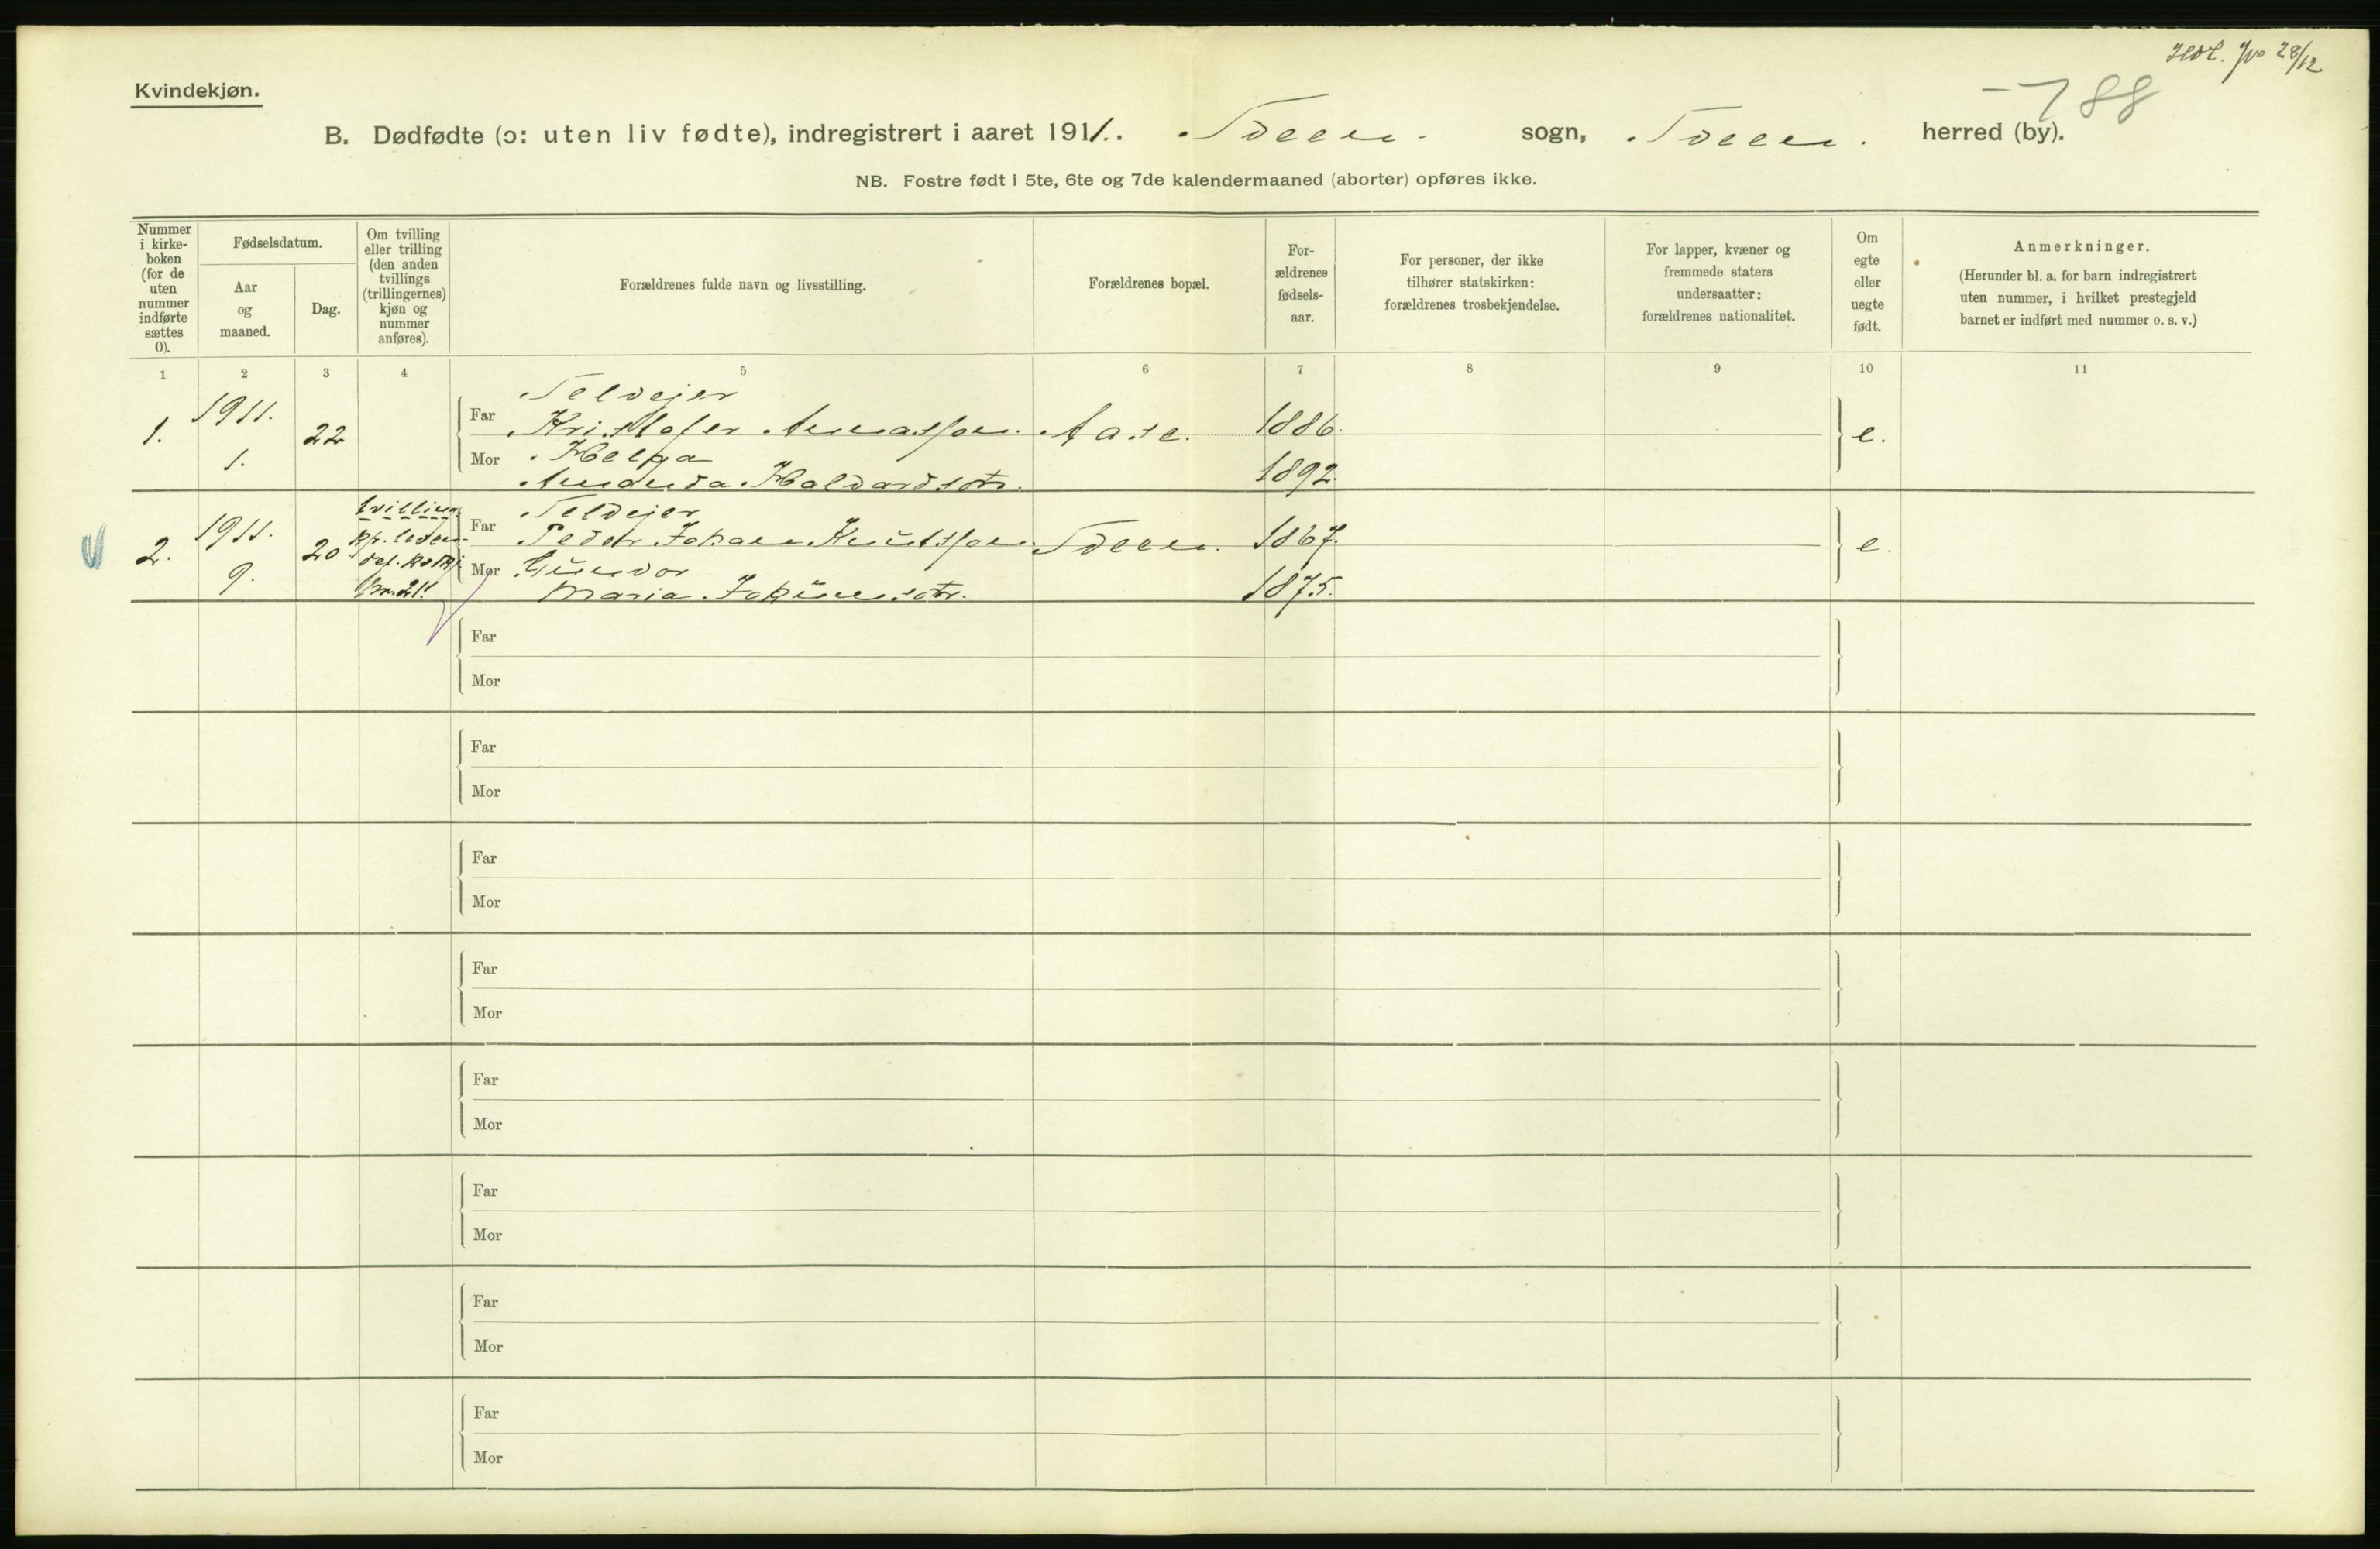 Kvindekjøn.
788
B. Dødfødte (ɔ: uten liv fødte), indregistrert i aaret 1911. Tveen. sogn, Tveen. herred (by).
NB. Fostre født i 5te, 6te og 7de kalendermaaned (aborter) opføres ikke.
Nummer i kirke-boken (for de uten nummer indførte sættes 0).
Fødselsdatum.
Aar og maaned.
Dag.
Om tvilling eller trilling (den anden tvillings (trillingernes) kjøn og nummer anføres).
Forældrenes fulde navn og livsstilling.
Forældrenes bopæl.
For-ældrenes fødsels-aar.
For personer, der ikke tilhører statskirken: forældrenes trosbekjendelse.
For lapper, kvæner og fremmede staters undersaatter: forældrenes nationalitet.
Om egte eller uegte født.
Anmerkninger.
(Herunder bl. a. for barn indregistrert uten nummer, i hvilket prestegjeld barnet er indført med nummer o. s. v.)
1 2 3 4 5 6 7 8 9 10 11
Selvejer
1. 1911. 22 Far Kristofer Aase. 1886. e.
1. Mor Helga
Haldvardsdtr. 1892.
tvilling Selvejer
2. 1911. 20 Far Peder Johan Knutsson 1867. e.
9. Mor Gunvor
nr. 21. Maria 1875.
Far
Mor
Far
Mor
Far
Mor
Far
Mor
Far
Mor
Far
Mor
Far
Mor
Far
Mor